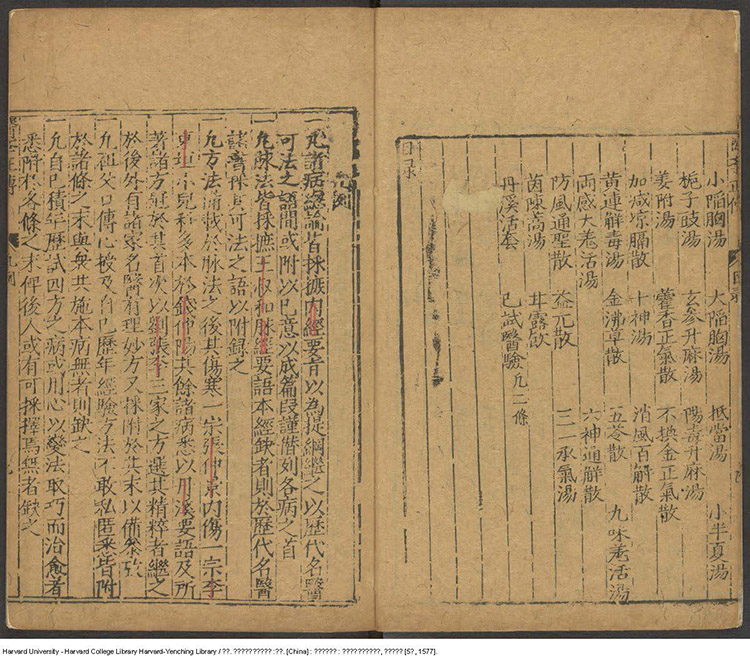 小陷胸湯 大陷胸湯 抵當湯 小半夏湯
梔子豉湯 玄參升麻湯 陽毒升麻湯
姜附湯 藿香正氣散 不換金正氣散
加减凉膈散 十神湯 消風百解散
黃連解毒湯 金沸草散 五苓散 九味羗活湯
兩感大羗活湯 六神通解散
防風通聖散 益元散 三一承氣湯
茵陳蒿湯 甘露飲
丹溪活套 已試醫驗 凡二條
目录
凡例
一凡諸病總論皆採摭内經要旨以為提綱繼之以歷代名醫
可法之語間或附以已意以成篇段謹僭列各病之首
一凡脉法皆採摭王叔和脉經要語本經缺者則於歷代名醫
諸書採其可法之語以附録之
一凡方法備載於脉法之後其傷寒一宗張仲景内傷一宗李
東垣小兒科多本於錢仲陽其餘諸病悉以丹溪要語及所
著諸方冠於其首次以劉張李三家之方選其精粹者繼之
於後外有諸家名醫有理妙方又採附於其末以備叅攷
一凡祖父口傳心授及自已歷年經驗方法不敢私匿悉皆附
於諸條之末與衆共施本病無者則缺之
一凡自已積年歷試四方之病或用心以變法取巧而治愈者
悉附於各條之末俾後人或有可採擇焉無者缺之
Harvard University - Harvard College Library Harvard-Yenching Library / ??. ?????????? :??. [China] : ?????? : ??????????, ????? [5?, 1577].